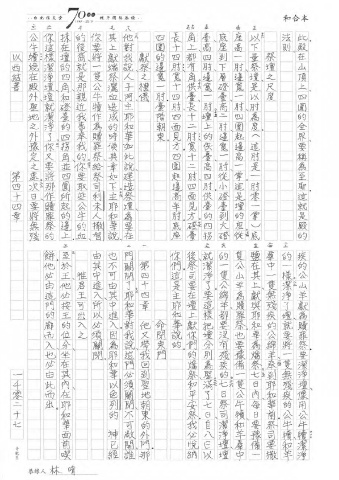 和合本
7000
此殿在山頂上四圍的全界要稱為至聖這就是殿的
法則
祭壇之尺度
以下量祭壇是以肘為度（這肘是一肘零一掌）底
座高一肘邊寬一肘四圍起邊高一掌這是壇的座從
底座到下層磴臺高二肘邊寬一肘從小磴臺到大磴
臺高四肘邊寬一肘壇上的供臺高四肘供臺的四拐
角上都有角供臺長十二肘寬十二肘四面見方磴臺
長十四肘寬十四肘四面見方四圍起邊高半肘底座
四圍的邊寬一肘臺階朝東
獻祭之禮儀
他對我說人子阿主耶和華如此說建造祭壇為要在
其上獻燔祭灑血造成的時候典章如下主耶和華說
你要將一隻公牛犢作為贖罪祭給祭司利未人撒督
的後裔就是那親近我事奉我的你要取些公牛的血
抹在壇的四角和磴臺的四拐角並四圍所起的邊上
你這樣潔淨壇壇就潔淨了你又要將那作贖罪祭的
公牛犢燒在殿外聖地之外預定之處次日要將無殘
疾的公山羊獻為贖罪祭要潔淨壇像用公牛犢潔淨
的一樣潔淨了壇就要將一隻無殘疾的公牛犢和羊
群中一隻無殘疾的公綿羊奉到耶和華前祭司要撒
鹽在其上獻與耶和華為燔祭七日內每日要預備一
隻公山羊為贖罪祭也要預備一隻公牛犢和羊群中
的一隻公綿羊都要沒有殘疾的七日祭司潔淨壇壇
就潔淨了要這樣把壇分別為聖滿了七日自八日以
後祭司要在壇上獻你們的燔祭和平安祭我必悅納
你們這是主耶和華說的
命閉東門
第四十四章　他又帶我回到聖地朝東的外門那
門關閉了耶和華對我說這門必須關閉不可敞開誰
也不可由其中進入因為耶和華以色列的神已經
由其中進入所以必須關閉
惟君王可出入之
至於王他必按王的位分坐在其內在耶和華面前喫
餅他必由這門的廊而入也必由此而出
以西結書　第四十四章　一千零二十七
恭錄人 林